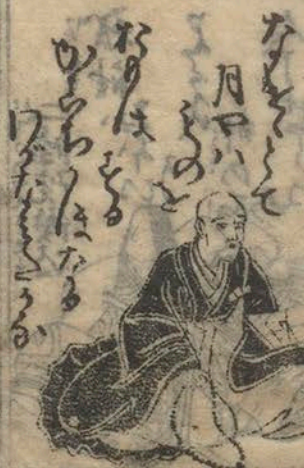 なげけとて
月やハ
ものを
おもは
する
かこちがほなる
わがなみだかな